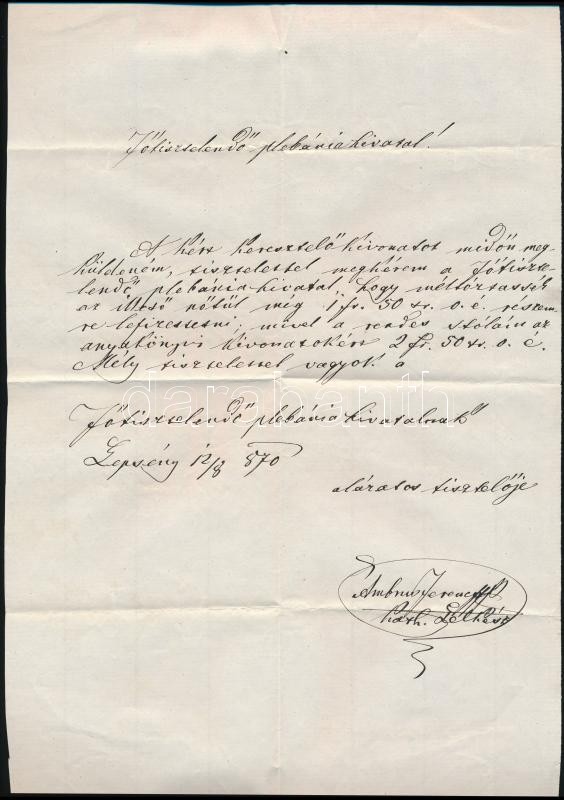 Főtisztelendő plebánia hivatal!
A kért keresztelő kivonatot midőn meg-
küldeném, tisztelettel megkérem a Főtiszte-
lendő plebánia hivatal, hogy méltóztassék
az illető nőtül még 1 fr. 50 xr. o. é. részem-
re lefizettetni; mivel a rendes stóláin az
anyakönyvi kivonatokért 2 fr. 50 xr. o. é.
Mély tisztelettel vagyok a
darabanth
Főtisztelendő plebánia hivatalnak
Lepsény 12/8 870
alázatos tisztelője
Ambrus Ferenc
kath. Lelkész